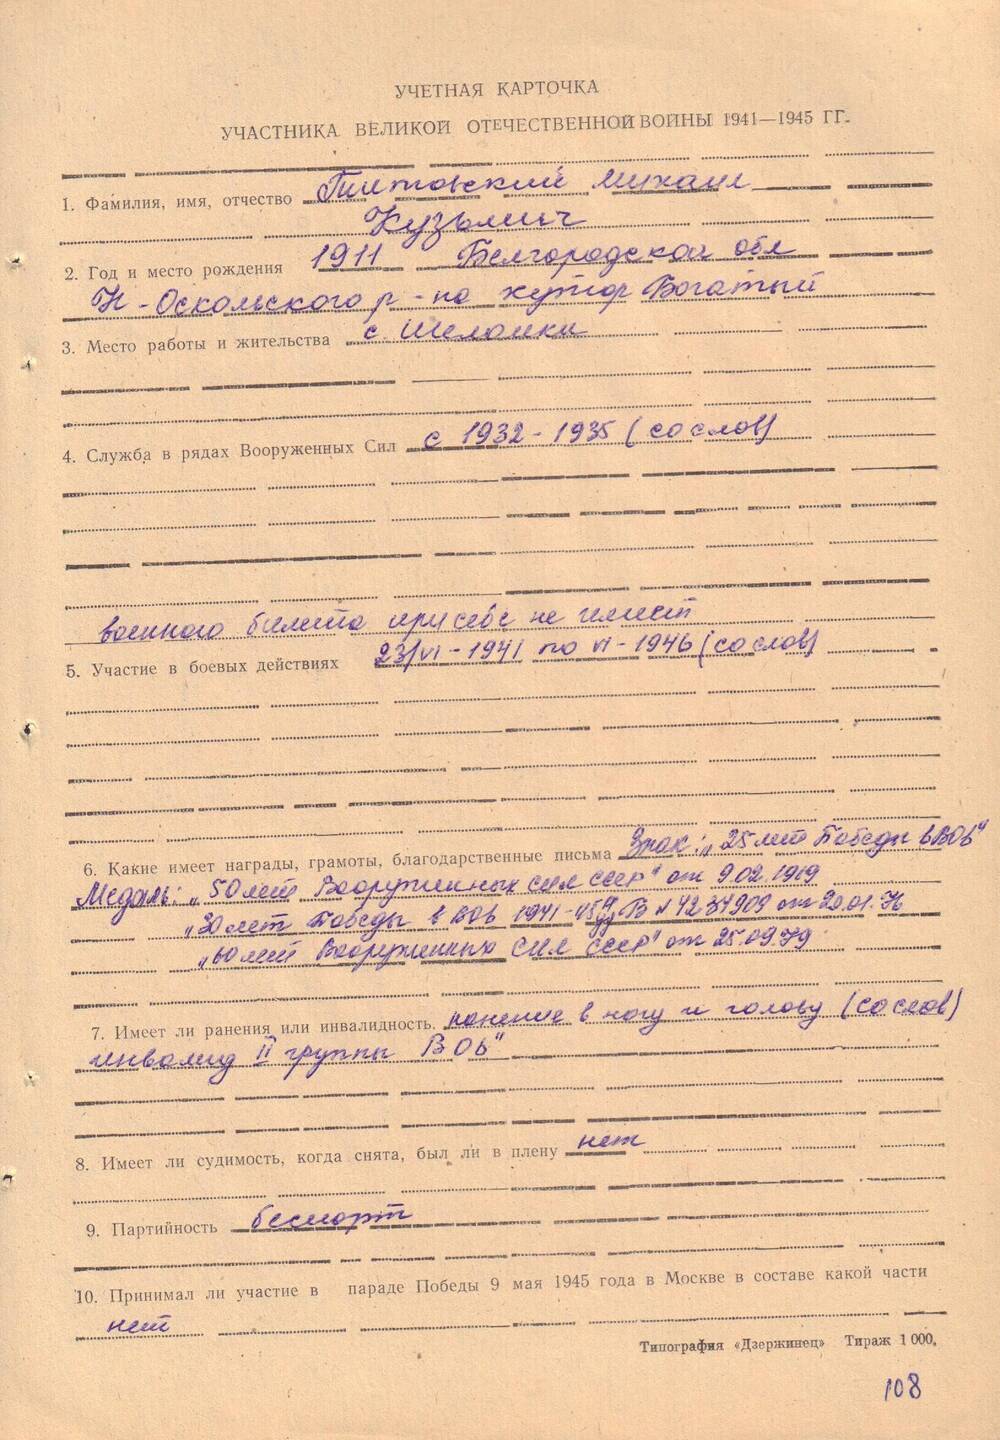 УЧЕТНАЯ КАРТОЧКА
УЧАСТНИКА ВЕЛИКОЙ ОТЕЧЕСТВЕННОЙ ВОЙНЫ 1941—1945 ГГ.
1. Фамилия, имя, отчество Гнитовский Михаил
Кузьмич
2. Год и место рождения 1911 Белгородской обл
Н-Оскольского р-на хутор Богатый
3. Место работы и жительства с. Шеломки
4. Служба в рядах Вооруженных Сил с 1932-1935 (со слов)
военного билета при себе не имеет
5. Участие в боевых действиях 23/VI-1941 по VI-1946 (со слов)
6. Какие имеет награды, грамоты, благодарственные письма Знак: „25 лет Победы в ВОВ"
Медаль: „50 лет Вооруженных сил СССР" от 9.02.1969
„30 лет Победы в ВОВ 1941-45 гг" В N 4234909 от 20.01.76
„60 лет Вооруженных Сил СССР" от 25.09.79
7. Имеет ли ранения или инвалидность. ранение в ногу и голову (со слов)
инвалид II группы ВОВ"
8. Имеет ли судимость, когда снята, был ли в плену нет
9. Партийность беспарт
10. Принимал ли участие в параде Победы 9 мая 1945 года в Москве в составе какой части
нет
Типография «Дзержинец» Тираж 1 000.
108